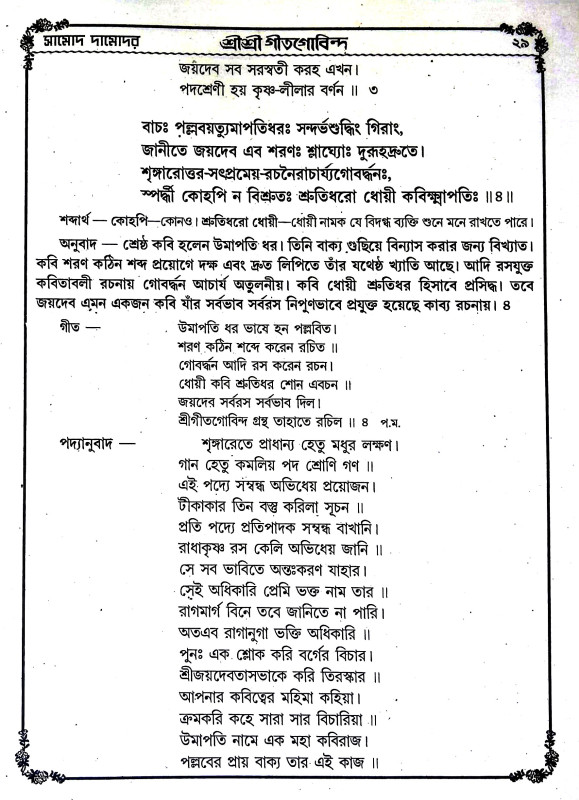 সামোদ দামোদর শ্রীশ্রী গীতগোবিন্দ ২৯
জয়দেব সব সরস্বতী করহ এখন।
পদশ্রেণী হয় কৃষ্ণ-লীলার বর্ণন ॥ ৩
বাচঃ পল্লবয়ত্যুমাপতিধরঃ সন্দর্ভশুদ্ধিং গিরাং,
জানীতে জয়দেব এব শরণঃ শ্লাঘ্যোঃ দুরূহদ্রুতে।
শৃঙ্গারোত্তর-সৎপ্রমেয়-রচনৈরাচার্য্যগোবর্দ্ধনঃ,
স্পর্দ্ধী কোহপি ন বিশ্রুতঃ শ্রুতিধরো ধোয়ী কবিক্ষ্মাপতিঃ ॥৪॥
শব্দার্থ — কোহপি—কোনও। শ্রুতিধরো ধোয়ী—ধোয়ী নামক যে বিদগ্ধ ব্যক্তি শুনে মনে রাখতে পারে।
অনুবাদ — শ্রেষ্ঠ কবি হলেন উমাপতি ধর। তিনি বাক্য গুছিয়ে বিন্যাস করার জন্য বিখ্যাত।
কবি শরণ কঠিন শব্দ প্রয়োগে দক্ষ এবং দ্রুত লিপিতে তাঁর যথেষ্ঠ খ্যাতি আছে। আদি রসযুক্ত
কবিতাবলী রচনায় গোবর্দ্ধন আচার্য অতুলনীয়। কবি ধোয়ী শ্রুতিধর হিসাবে প্রসিদ্ধ। তবে
জয়দেব এমন একজন কবি যাঁর সর্বভাব সর্বরস নিপুণভাবে প্রযুক্ত হয়েছে কাব্য রচনায়। ৪
গীত — উমাপতি ধর ভাষে হন পল্লবিত।
শরণ কঠিন শব্দে করেন রচিত ॥
গোবর্দ্ধন আদি রস করেন রচন।
ধোয়ী কবি শ্রুতিধর শোন এবচন ॥
জয়দেব সর্বরস সর্বভাব দিল।
শ্রীগীতগোবিন্দ গ্রন্থ তাহাতে রচিল ॥ ৪ প.ম.
পদ্যানুবাদ — শৃঙ্গারেতে প্রাধান্য হেতু মধুর লক্ষণ।
গান হেতু কমলিয় পদ শ্রোণি গণ ॥
এই পদ্যে সম্বন্ধ অভিধেয় প্রয়োজন।
টীকাকার তিন বস্তু করিলা সূচন ॥
প্রতি পদ্যে প্রতিপাদক সম্বন্ধ বাখানি।
রাধাকৃষ্ণ রস কেলি অভিধেয় জানি ॥
সে সব ভাবিতে অন্তঃকরণ যাহার।
সেই অধিকারি প্রেমি ভক্ত নাম তার ॥
রাগমার্গ বিনে তবে জানিতে না পারি।
অতএব রাগানুগা ভক্তি অধিকারি ॥
পুনঃ এক শ্লোক করি বর্গের বিচার।
শ্রীজয়দেবতাসভাকে করি তিরস্কার ॥
আপনার কবিত্বের মহিমা কহিয়া।
ক্রমকরি কহে সারা সার বিচারিয়া ॥
উমাপতি নামে এক মহা কবিরাজ।
পল্লবের প্রায় বাক্য তার এই কাজ ॥